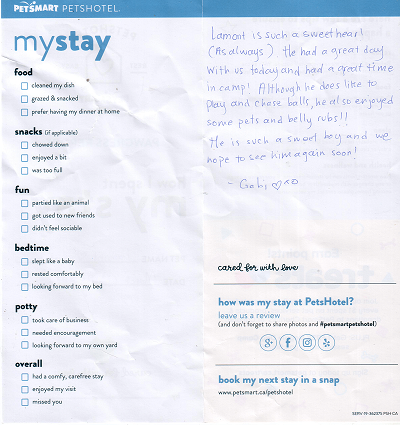 PETSMART PETSHOTEL
mystay
food
cleaned my dish
grazed & snacked
prefer having my dinner at home
snacks (if applicable)
chowed down
enjoyed a bit
was too full
fun
partied like an animal
got used to new friends
didn't feel sociable
bedtime
slept like a baby
rested comfortably
looking forward to my bed
potty
took care of business
needed encouragement
looking forward to my own yard
overall
had a comfy, carefree stay
enjoyed my visit
missed you
Lamont is such a sweetheart
(As always). He had a great day
with us today and had a great time
in camp! Although he does like to
play and chase balls, he also enjoyed
some pets and belly rubs!!
He is such a sweet boy and we
hope to see him again soon!
- Gabi ♡xo
cared for with love
how was my stay at PetsHotel?
leave us a review
(and don't forget to share photos and #petsmartpetshotel)
book my next stay in a snap
www.petsmart.ca/petshotel